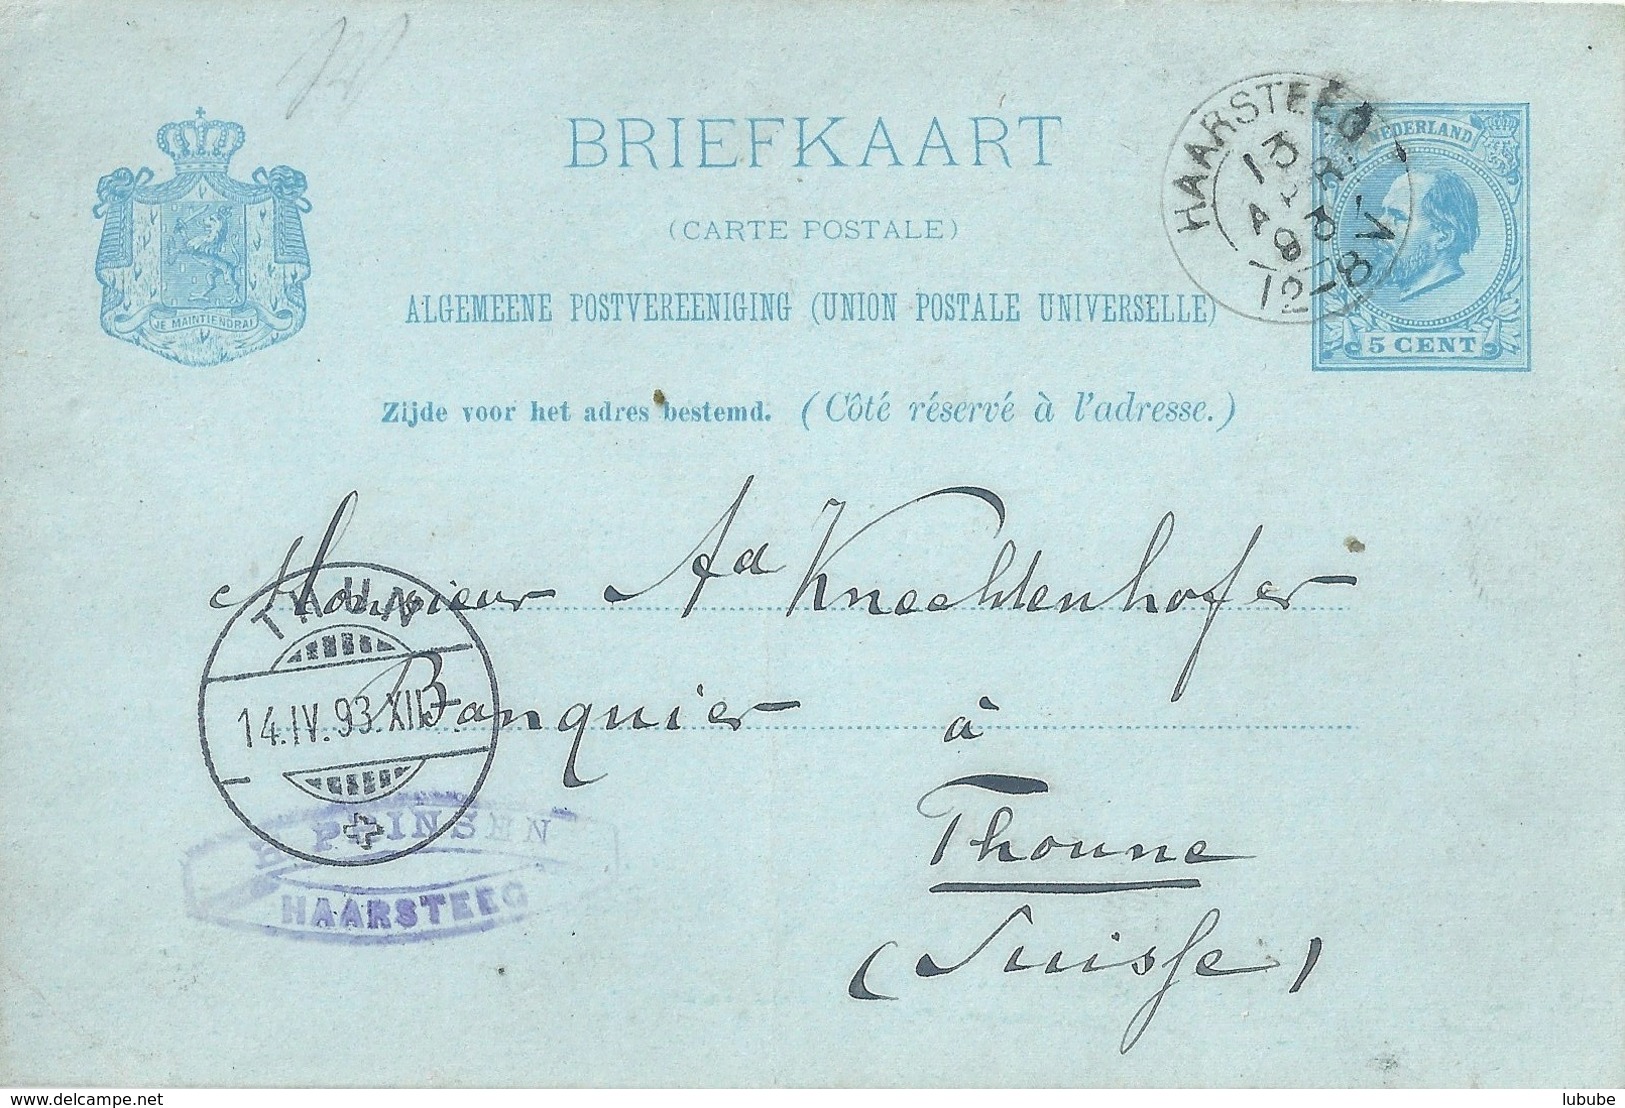 BRIEFKAART
(CARTE POSTALE)
ALGEMEENE POSTVEREENIGING (UNION POSTALE UNIVERSELLE)
Zijde voor het adres bestemd. (Côté réservé à l'adresse.)
JE MAINTIENDRAI
HAARSTEEG
13
APRI
93
12-8V
NEDERLAND
5 CENT
Monsieur Ad Knechtenhofer
Banquier à
Thoune
(Suisse)
THUN
14.IV.93.XII
PRINSEN
HAARSTEEG
delcampe.net
lubube